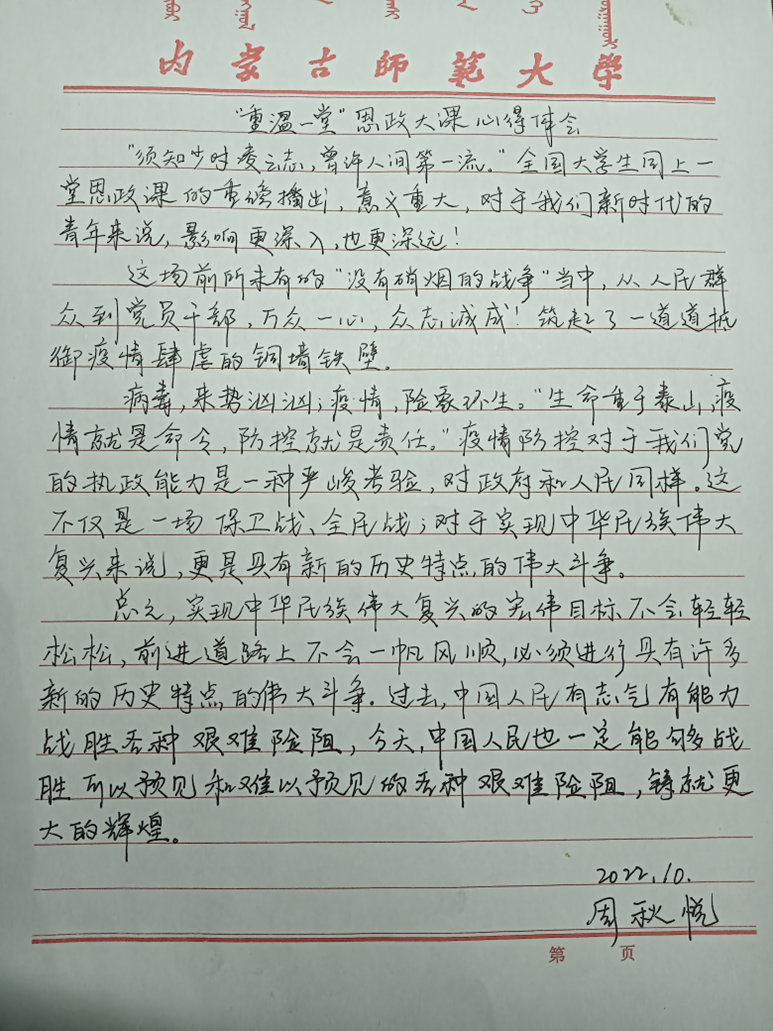 内蒙古师范大学
“重温一堂”思政大课心得体会
“须知少时凌云志，曾许人间第一流。”全国大学生同上一
堂思政课的重磅播出，意义重大，对于我们新时代的
青年来说，影响更深入，也更深远！
这场前所未有的“没有硝烟的战争”当中，从人民群
众到党员干部，万众一心，众志诚成！筑起了一道道抵
御疫情肆虐的铜墙铁壁。
病毒，来势汹汹；疫情，险象环生。“生命重于泰山，疫
情就是命令，防控就是责任。”疫情防控对于我们党
的执政能力是一种严峻考验，对政府和人民同样。这
不仅是一场保卫战、全民战；对于实现中华民族伟大
复兴来说，更是具有新的历史特点的伟大斗争。
总之，实现中华民族伟大复兴的宏伟目标不会轻轻
松松，前进道路上不会一帆风顺，必须进行具有许多
新的历史特点的伟大斗争。过去，中国人民有志气有能力
战胜各种艰难险阻，今天，中国人民也一定能够战
胜可以预见和难以预见的各种艰难险阻，铸就更
大的辉煌。
2022.10.
周秋悦
第 页